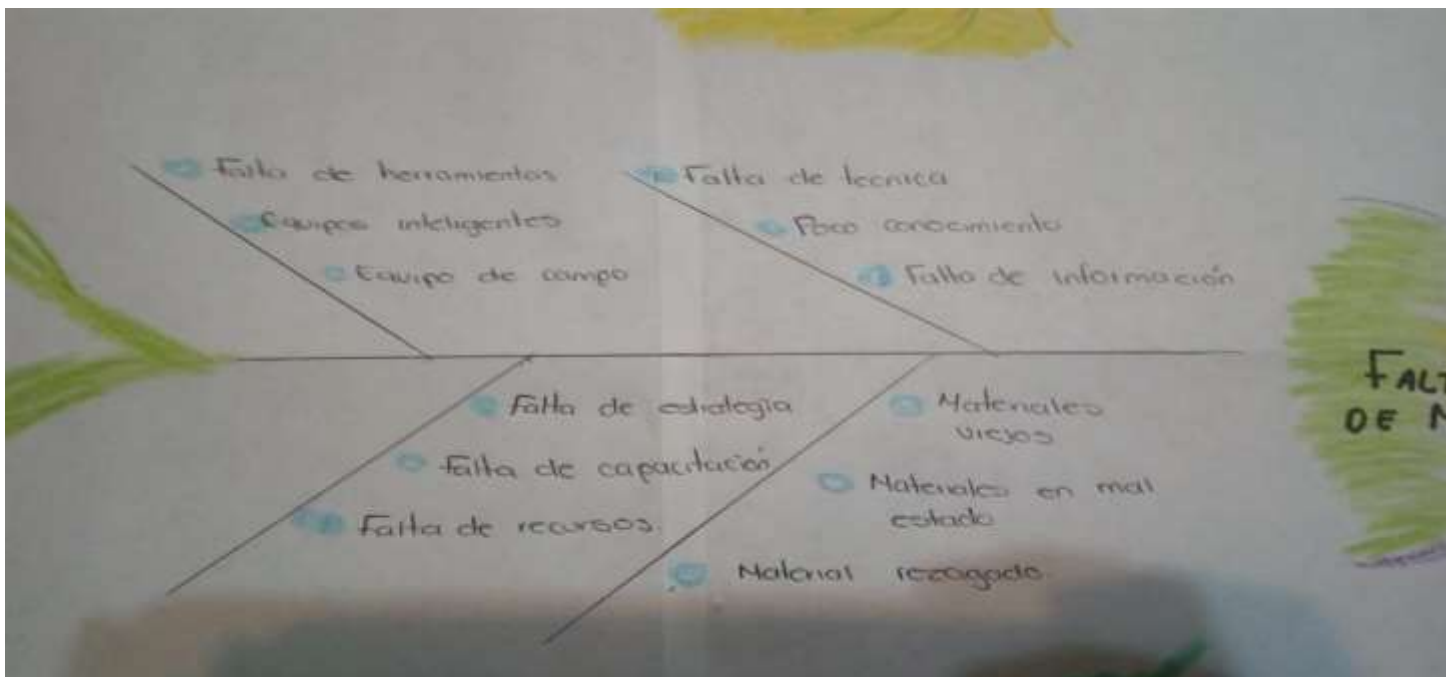 Falta de herramientas
Equipos inteligentes
Equipo de campo
Falta de tecnica
Poco conocimiento
Falta de información
Falta de estrategia
Falta de capacitación
Falta de recursos.
Materiales
viejos
Materiales en mal
estado
Material rezagado.
FALT
DE